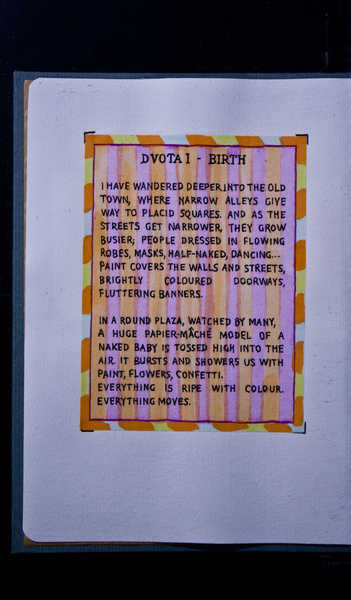 DVOTA I - BIRTH
I HAVE WANDERED DEEPER INTO THE OLD
TOWN, WHERE NARROW ALLEYS GIVE
WAY TO PLACID SQUARES. AND AS THE
STREETS GET NARROWER, THEY GROW
BUSIER; PEOPLE DRESSED IN FLOWING
ROBES, MASKS, HALF-NAKED, DANCING...
PAINT COVERS THE WALLS AND STREETS,
BRIGHTLY COLOURED DOORWAYS,
FLUTTERING BANNERS.
IN A ROUND PLAZA, WATCHED BY MANY,
A HUGE PAPIER-MÂCHÉ MODEL OF A
NAKED BABY IS TOSSED HIGH INTO THE
AIR. IT BURSTS AND SHOWERS US WITH
PAINT, FLOWERS, CONFETTI.
EVERYTHING IS RIPE WITH COLOUR.
EVERYTHING MOVES.